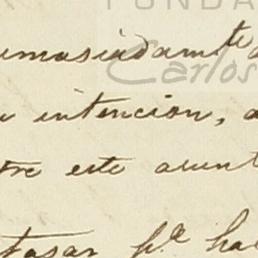 FUNDA
umasiadamte a
Carlos
a intencion, a
tre este asunt
tasar p.r hac